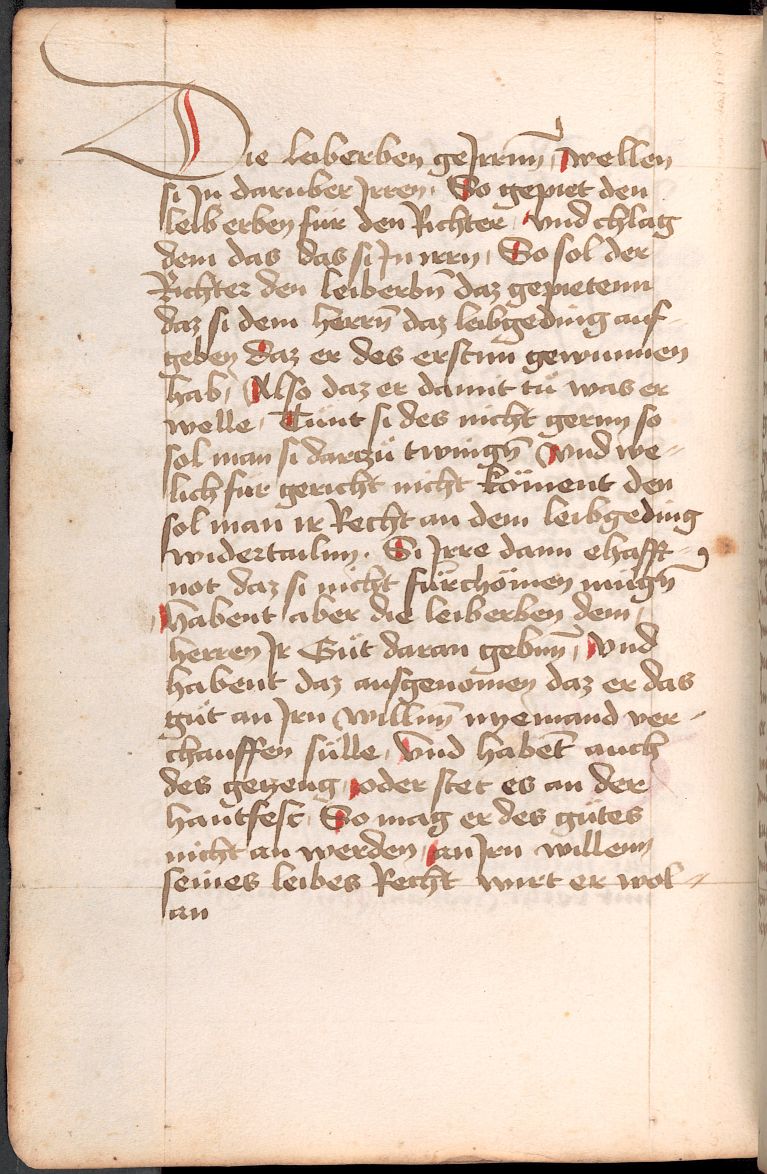 Die leiberben geJrrnn̄, wellen
si Jn daruber Jrren. So gepiet den
leib erben für den Richter, vnd chlag
dem das das si Jn irrn, So sol der
Richter den leiberbn̄ daz gepietenn
daz si dem herrn̄ daz leibgeding auf-
geben daz er des erstnn gewunnen
hab, Also daz er damit tü was er
welle, Tünt si des nicht gernn so
sol man si darzü twingn̄ vnd we-
lich für gericht nicht köment den
sol man ir Recht an dem leibgeding
widertailnn. Si Jrre dann ehafft-
not daz si nicht fürchömen mügn̄
habent aber die leiberben dem
herren Jr Güt daran gebnn̄, vnd
habent daz ausgenomen daz er das
güt an Jrn willnn̄ nyemand ver-
chauffen sülle, vnd habent̄ auch
des gezeug, oder stet es an der
hantfest, So mag er des gütes
nicht an werden, an Jrn willenn
seines leibes Recht wirt er wol
an